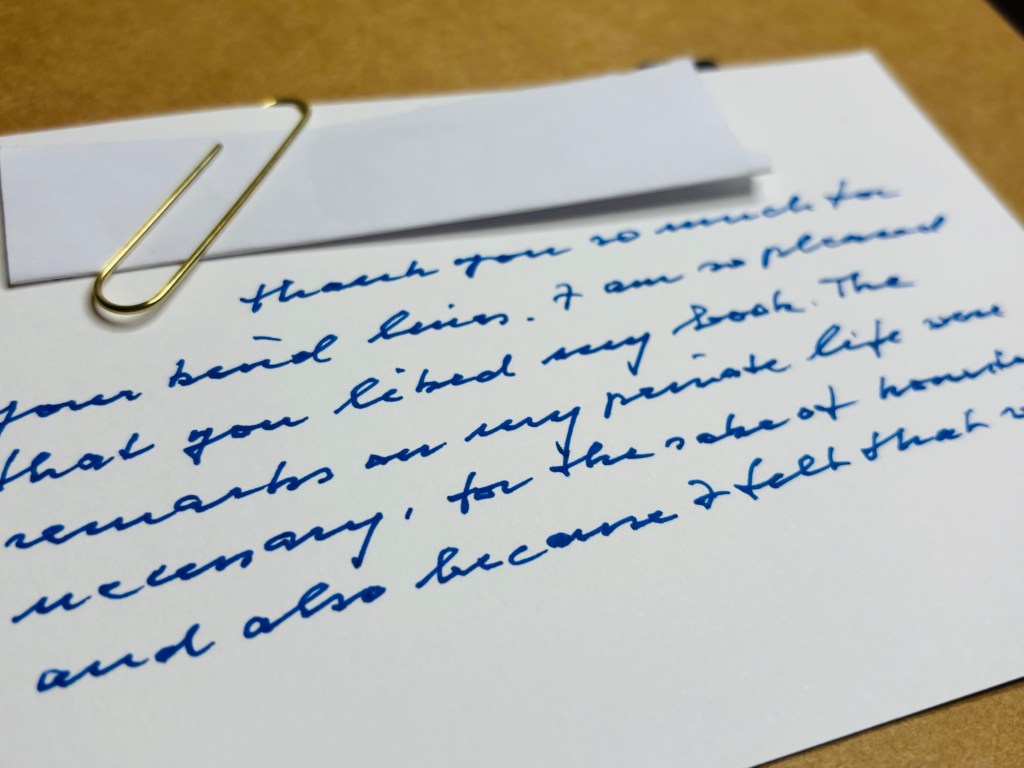 thank you so much for
your kind lines. I am so pleased
that you liked my book. The
remarks on my private life were
necessary, for the sake of
and also because I felt that